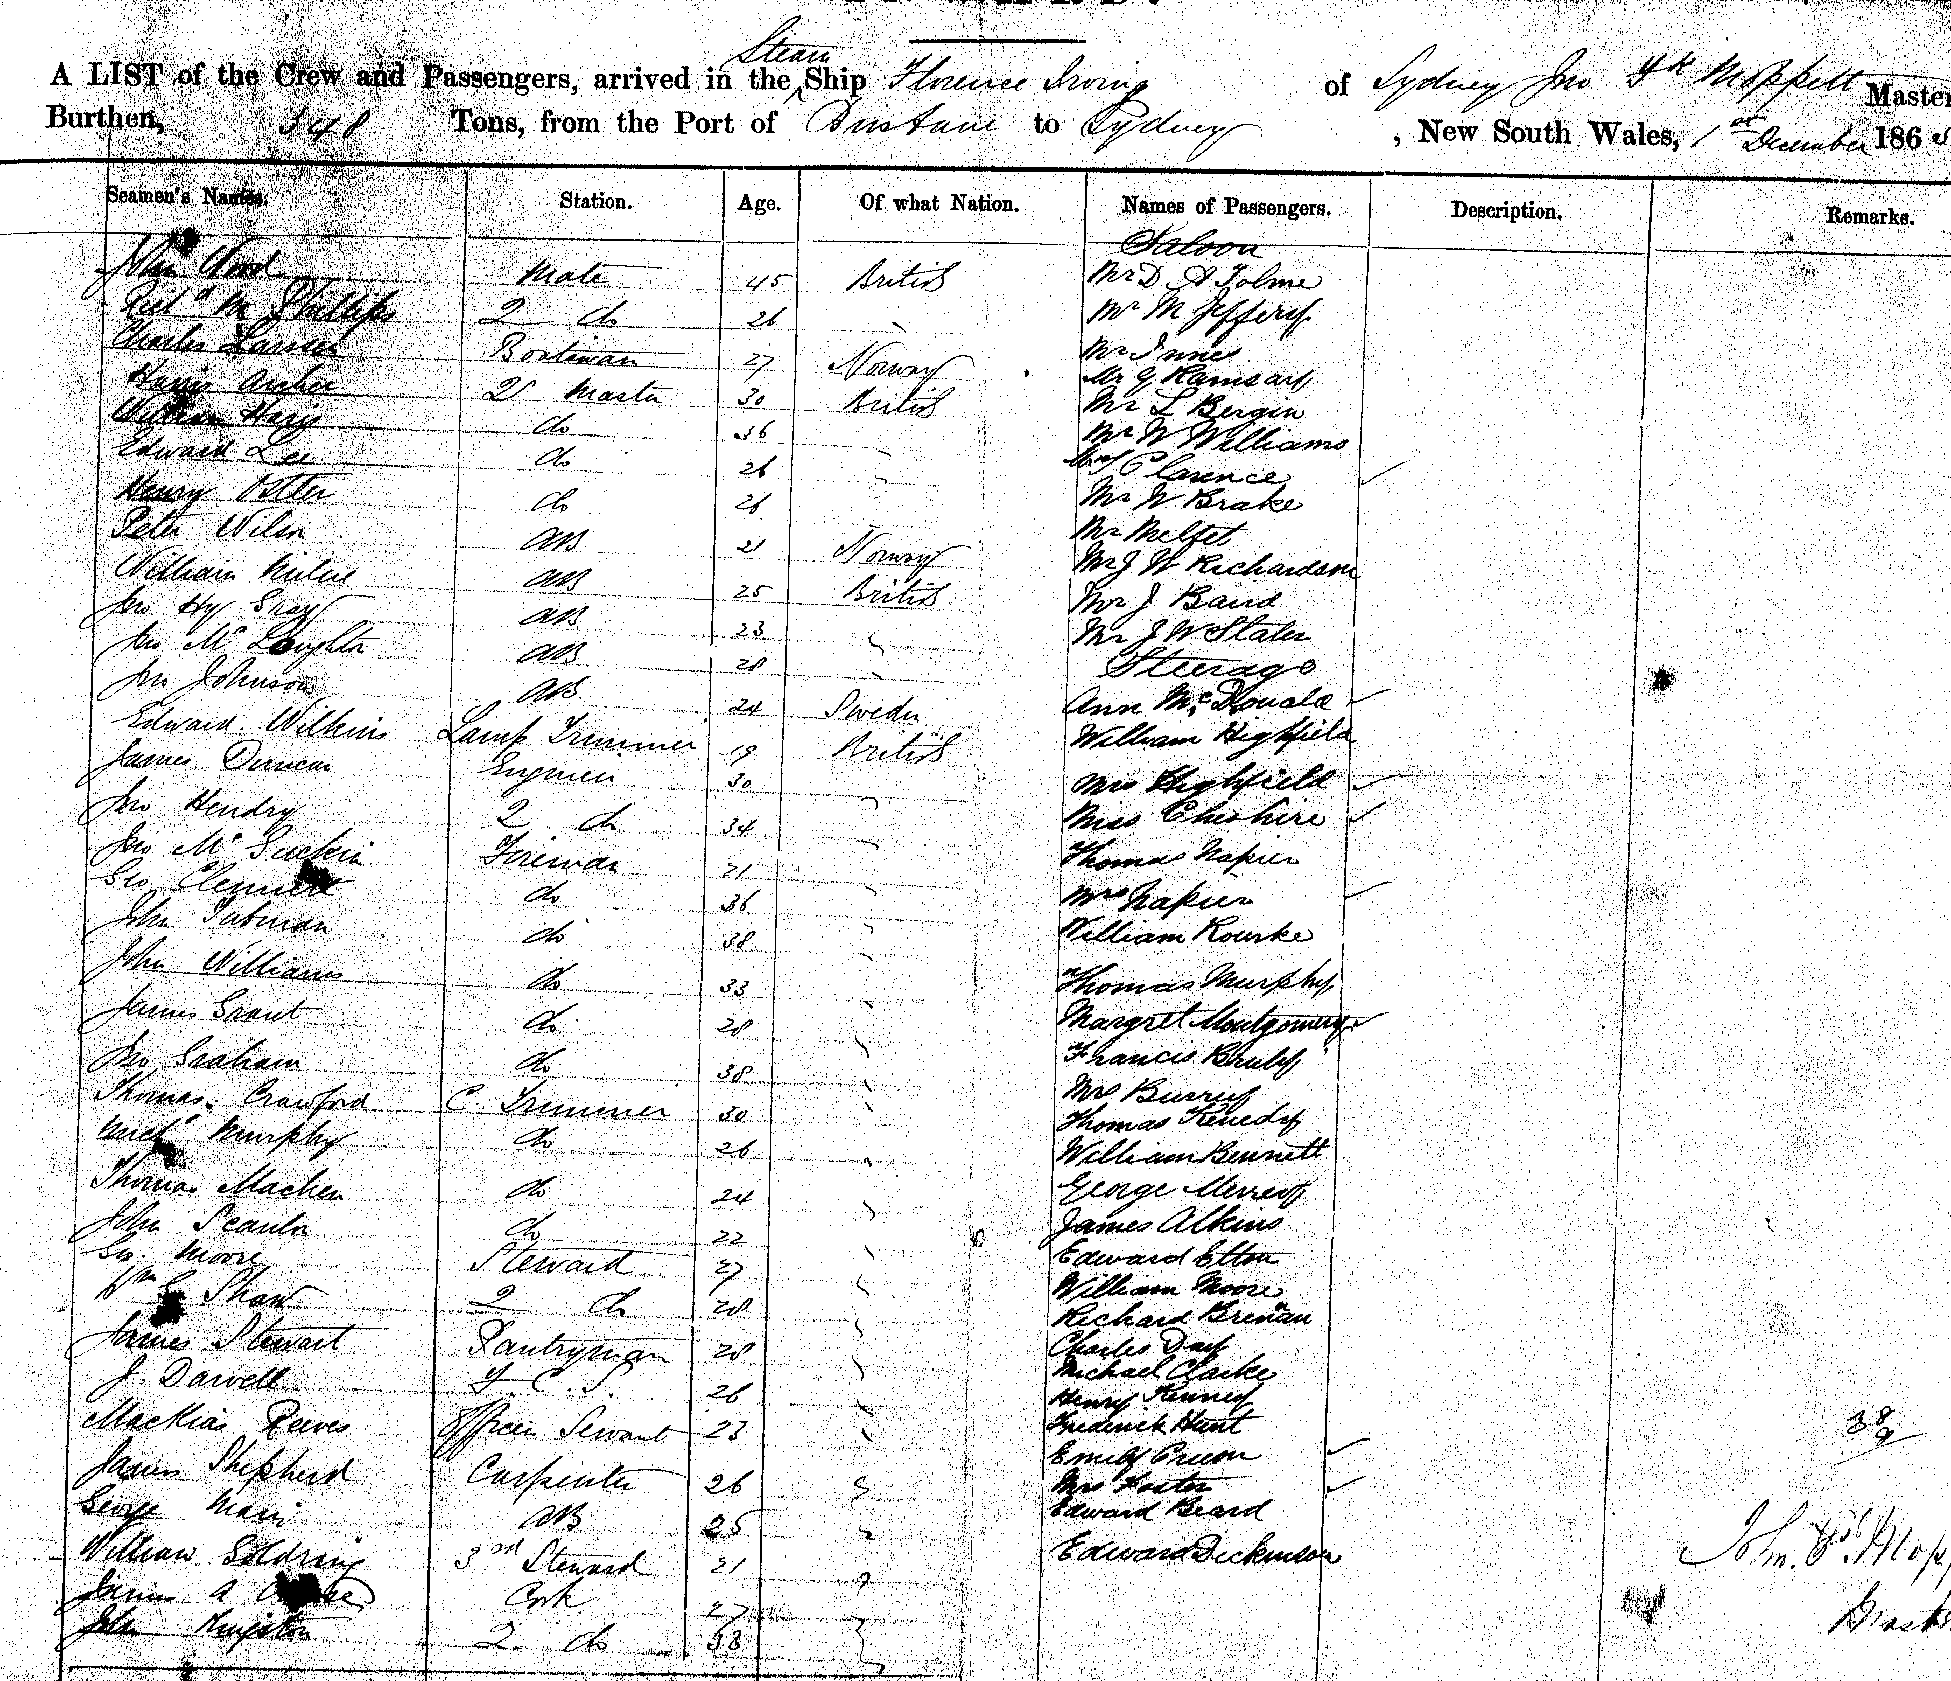 A LIST of the Crew and Passengers, arrived in the Steam Ship Florence Irving of Sydney Jno Moffett Master
Burthen, 348 Tons, from the Port of Brisbane to Sydney, New South Wales, 1st December 186
Seamen's Names. Station. Age. Of what Nation. Names of Passengers. Description. Remarks.
Saloon
John Wood Mate 45 British Mr D A Tolme
Richd M Phillips 2 do 26 Mr M Jeffery
Charles Boatswan 27 Norway Mr Innes
Archer 2 Master 30 British Mr G Ramsay
Mr L Bergin
William Hays do 36 Mr W Williams
Edward Lee do 26 Clarence
Henry Otter do 26 Mr W Brake
Peter Wilson AB 21 Norway Mr Meltet
William Milne AB 25 British Mr J W Richardson
Jno Hy Gray AB 23 Mr J Baird
Jno McLoughlin AB 28 Mr J W Slater
Steerage
Jno Johnson AB 24 Sweden Ann McDonald
Edward Wilkins Lamp Trimmer 19 British William Highfield
James Duncan Engineer 30 Mrs Highfield
Jno Hendry 2 do 34 Miss Cheshire
Jno Mc Fireman 21 Thomas Napier
Geo Clement do 36 Mrs Napier
John Tubman do 38 William Rourke
John Williams do 33 Thomas Murphy
James Grant do 28 Margret Montgomery
Jno Graham do 38 Francis
Thomas Crawford C. Trimmer 30 Mrs
Thomas Kenedy
Michl Murphy do 26 William Bennett
Thomas Machen do 24 George
John Scanlon do 22 James Atkins
Geo. Moore Steward 27 Edward Elton
Wm G Shaw 2 do 28 William Moore
Richard Brenan
James Stewart Pantryman 28 Charles Day
J. Darvell F. C. S. 26 Michael Clarke
Henry Kenney
Mackias Reeves Officers Servant 23 Frederick Hunt
Emily
James Shepherd Carpenter 26 Mrs Foster
George AB 25 Edward Beard
William Soldring 3rd Steward 21 Edward Dickinson
James A Cook 27
John Kingston 2 do 38
38
9
John Mof